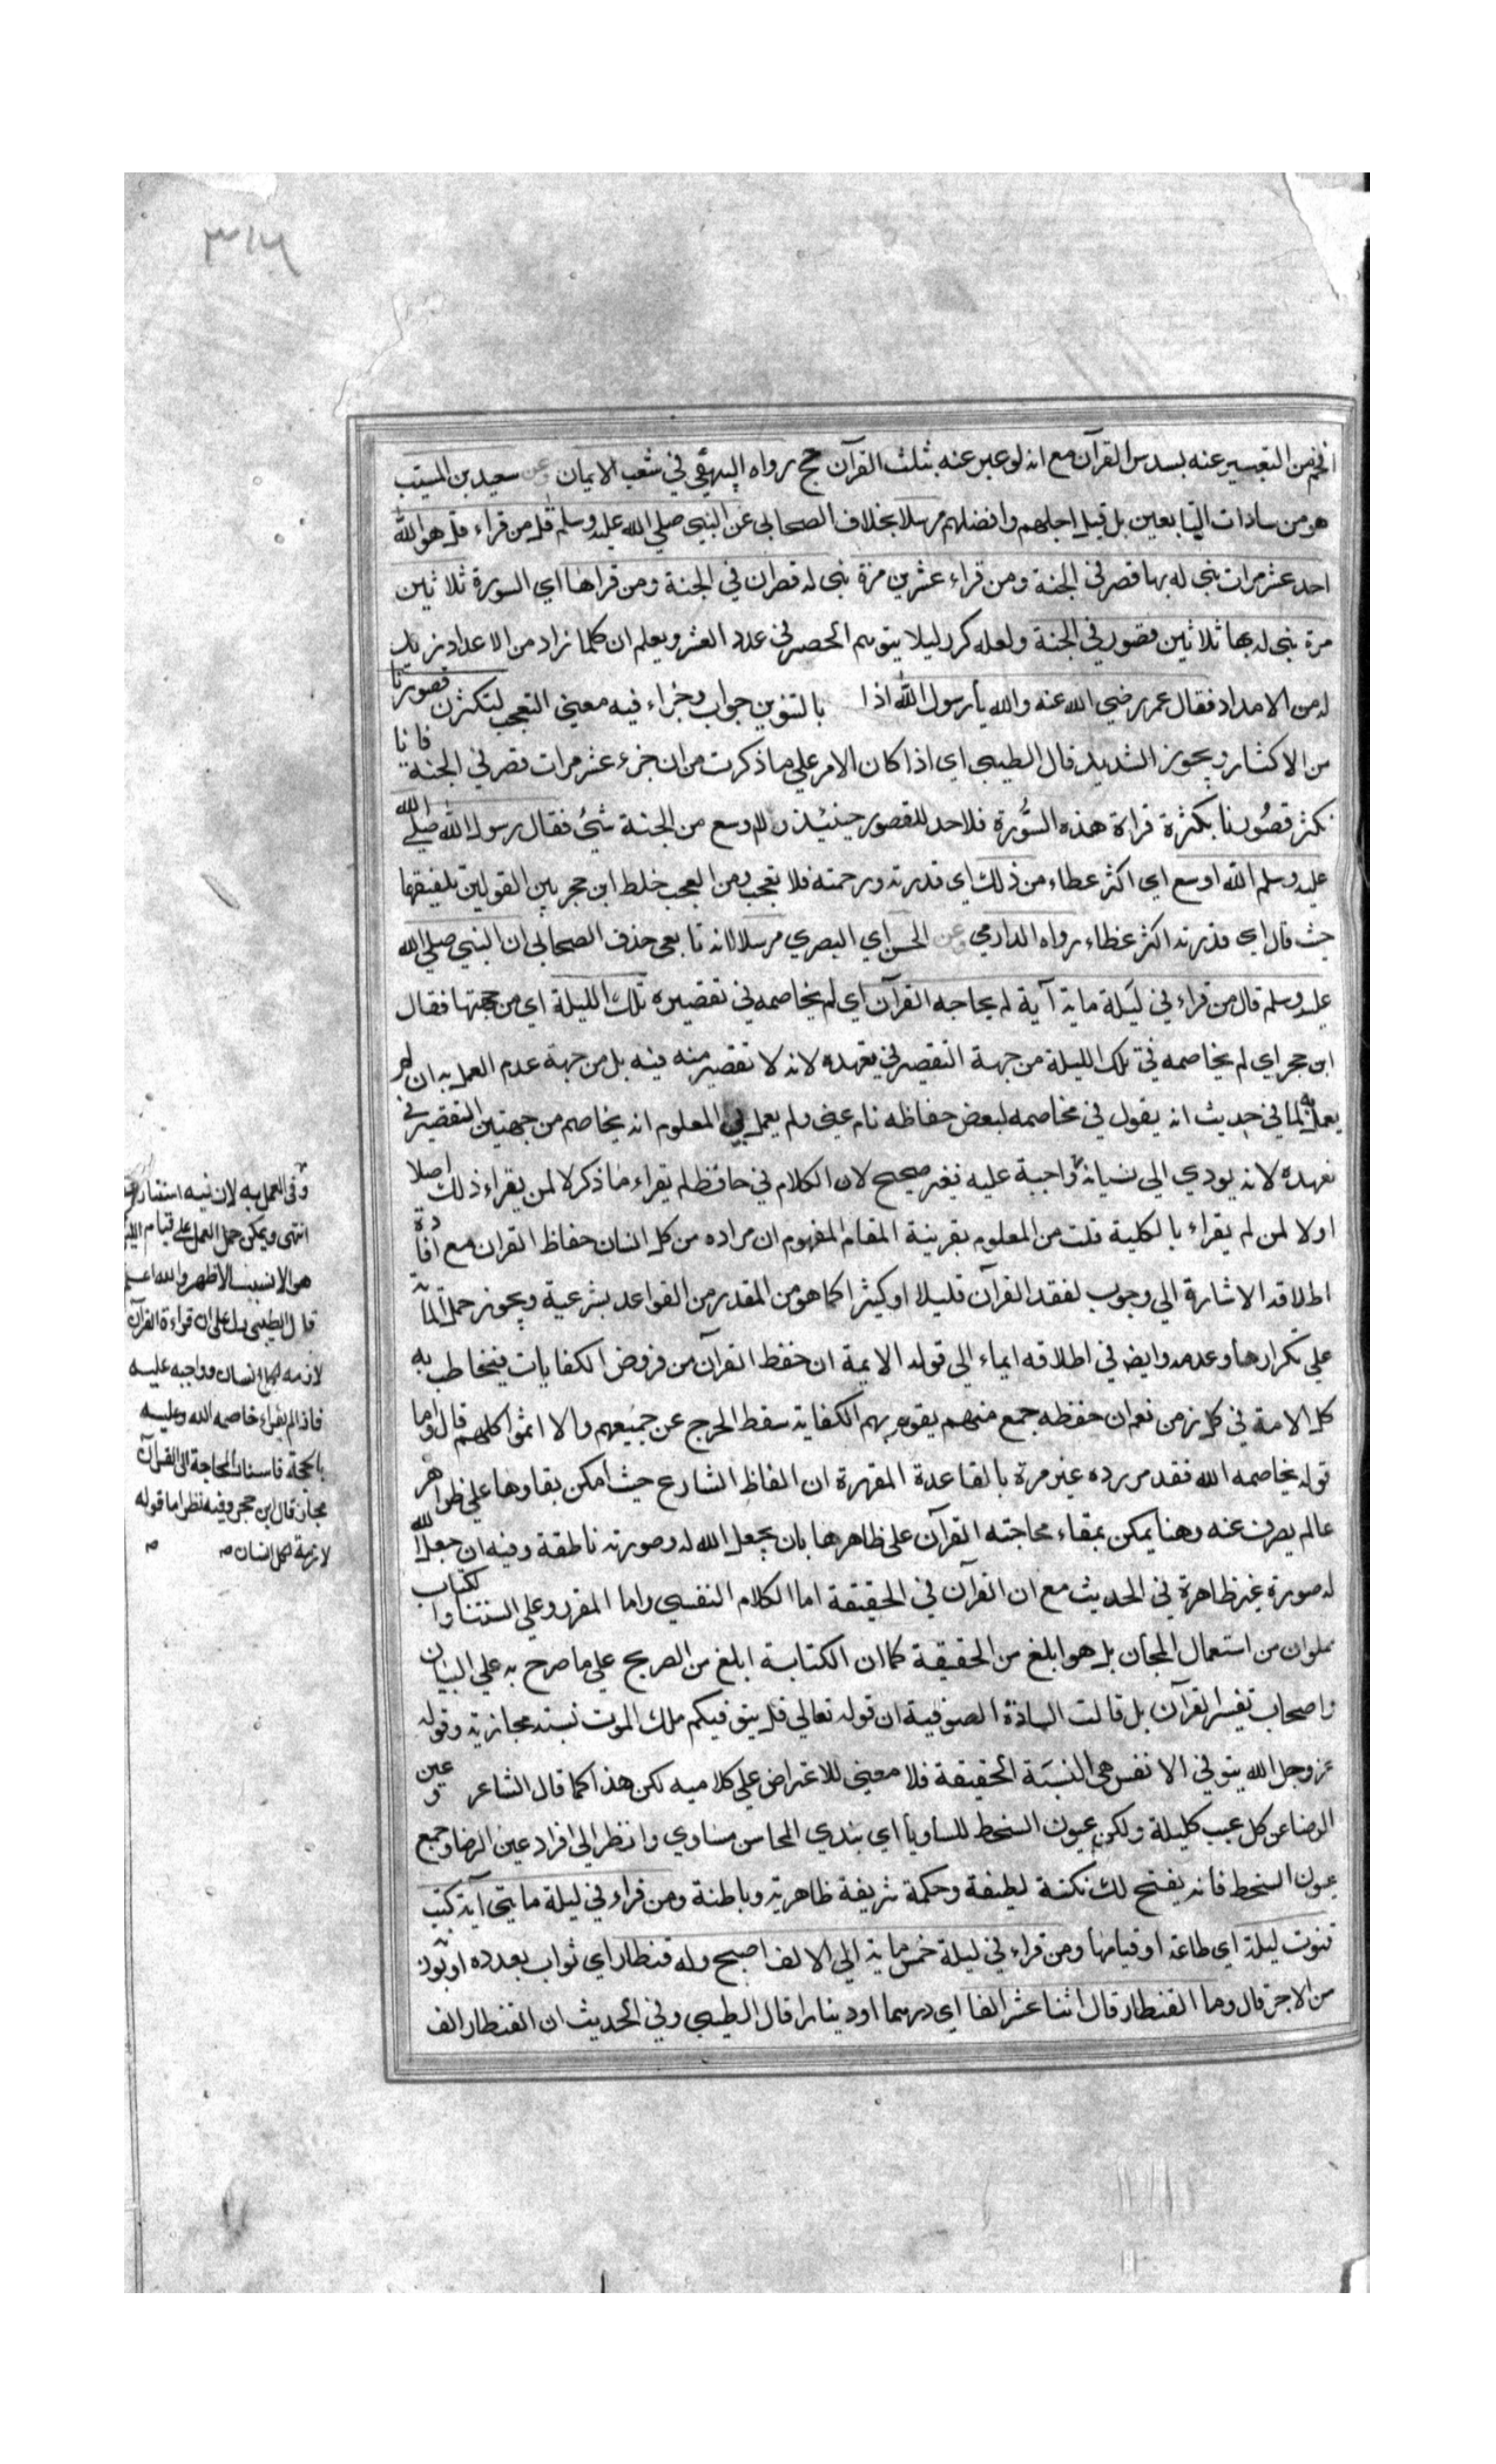 ٣١٦
افخم من التعبير عنه بسدس القرآن مع انه لو عبر عنه بثلث القرآن حج رواه البيهقي في شعب الايمان وعن سعيد بن المسيب
هو من سادات التابعين بل قيل اجلهم وافضلهم مرسلا بخلاف الصحابي عن النبي صلي الله عليه وسلم قال من قراء قل هو الله
احد عشر مرات بني له بها قصر في الجنة ومن قراء عشرين مرة بني له قصران في الجنة ومن قراها اي السورة ثلاثين
مرة بني له بها ثلاثين قصور في الجنة ولعله كرر ليلا يتوهم الحصر في عدد العشر ويعلم ان كلما زاد من الاعداد زيد
له من الامداد فقال عمر رضي الله عنه والله يا رسول الله اذا بالتنوين جواب وجزاء فيه معني التعجب لتكثرن قصورنا
من الاكثار ويجوز الشديد قال الطيبي اي اذا كان الامر علي ما ذكرت من ان جزء عشر مرات قصر في الجنة فانا
نكثر قصورنا بكثرة قراءة هذه السورة فلا حد للقصور حينئذ ولا اوسع من الجنة شئ فقال رسول الله صلي الله
عليه وسلم الله اوسع اي اكثر عطاء من ذلك اي قدرته ورحمته فلا تعجب ومن العجب خلط ابن حجر بين القولين بلفيقها
حيث قال اي قدرته اكثر عطاء رواه الدارمي وعن الحسن اي البصري مرسلا لانه تابعي حذف الصحابي ان النبي صلي الله
عليه وسلم قال من قراء في ليلة ماية آية لم يحاجه القرآن اي لم يخاصمه في تقصيره تلك الليلة اي من جهتها فقال
ابن حجر اي لم يخاصمه في تلك الليلة من جهة التقصير في تعهده لانه لا تقصير منه فيه بل من جهة عدم العمل به ان لم
يعمل به لما في حديث انه يقول في مخاصمه لبعض حفاظه نام عني ولم يعمل بي المعلوم انه يخاصم من جهتين التقصير في
تعهده لانه يودي الي نسيانه واجبة عليه فغير صحيح لان الكلام في حافظ لم يقراء ما ذكر لا لمن يقراء ذلك اصلا
اولا لمن لم يقراء بالكلية قلت من المعلوم بقرينة المقام المفهوم ان مراده من كل انسان حفاظ القران مع افادة
اطلاقه الاشارة الي وجوب لفقد القرآن قليلا او كثيرا كما هو من المقدر من القواعد بشرعية ويجوز حمل الماية
علي تكرارها وعدمه وايض في اطلاقه ايماء الي قوله الايمة ان حفظ القرآن من فروض الكفايات فيخاطب به
كل الامة في كل زمن نعم ان حفظه جمع منهم يقوم بهم الكفاية سقط الحرج عن جميعهم والا اثموا كلهم قال واما
قوله يخاصمه الله فقد مر رده غير مرة بالقاعدة المقررة ان الفاظ الشارع حيث امكن بقاوها علي ظواهر
عالم يصرف عنه وهنا يمكن بمقاء محاجته القرآن علي ظاهرها بان يجعل الله له وصورته ناطقة وفيه ان جعل الله
له صورة غير ظاهرة في الحديث مع ان القرآن في الحقيقة اما الكلام النفسي واما المقرو علي السنتنا والكتاب
مملوان من استعمال المجان بل هو ابلغ من الحقيقة كما ان الكتابة ابلغ من الصريح علي ما صرح به علي البيان
واصحاب تفسر القرآن بل قالت السادة الصوفية ان قوله تعالي قل يتوفيكم ملك الموت نسبته مجازية وقوله
عز وجل الله يتوفي الانفس هي النسبة الحقيقة فلا معني للاعتراض علي كلاميه لكن هذا كما قال الشاعر وعين
الرضا عن كل عيب كليلة ولكن عيون السخط للساويا اي بتدي المحاسن مساوي وانظر الي افراد عين الرضا وجمع
عيون السخط فانه يفتح لك نكتة لطيفة وحكمة شريفة ظاهرية وباطنة ومن قراء في ليلة مايتي آية كتب
قنوت ليلة اي طاعة او قيامها ومن قراء في ليلة خمس ماية الي الالف اصبح وله قنطار اي ثواب بعدده او بوزن
من الاجر قال وما القنطار قال اثنا عشر الفا اي درهما او دينارا قال الطيبي وفي الحديث ان القنطار الف
وفي العمل به لان فيه استنار
انتهي ويمكن حمل العمل علي قيام الليل
هو الانسب الاظهر والله اعلم
قال الطيبي دل علي ان قراءة القرآن
لازمة لكل انسان وواجبه عليه
فاذا لم يقراء خاصمه الله وعليه
بالحجة فاسناد المحاجة الي القرآن
مجاز قال ابن حجر وفيه نظر اما قوله
لازمة لكل انسان